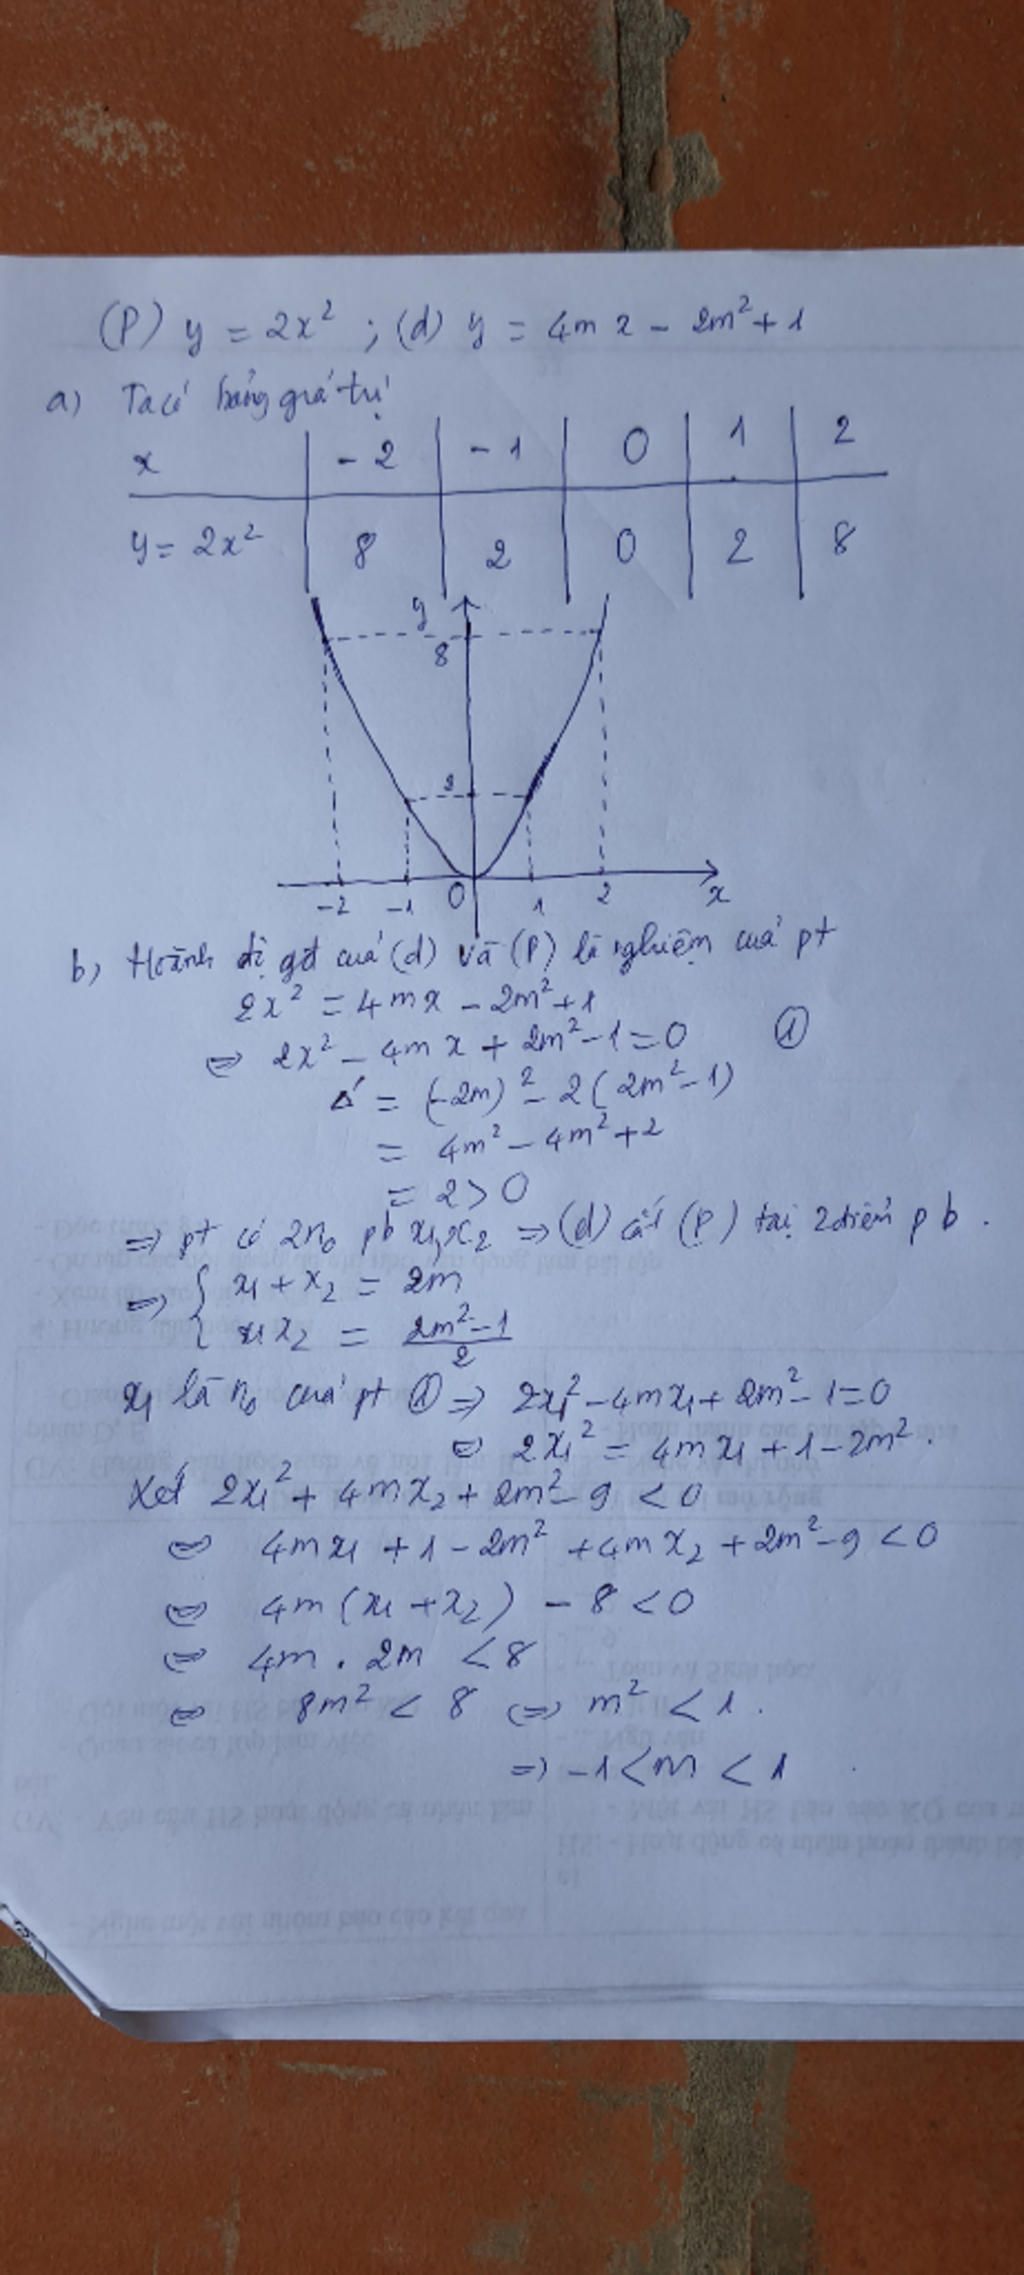 (P) y = 2x² ; (d) y = 4m x - 2m² + 1
a) Ta có bảng giá trị
x | -2 | -1 | 0 | 1 | 2
y = 2x² | 8 | 2 | 0 | 2 | 8
y
8
2
-2 -1 O 1 2 x
b) Hoành độ gđ của (d) và (P) là nghiệm của pt
2x² = 4mx - 2m² + 1
⇔ 2x² - 4m x + 2m² - 1 = 0 ①
Δ' = (-2m)² - 2(2m² - 1)
= 4m² - 4m² + 2
= 2 > 0
⇒ pt có 2 n₀ pb x₁, x₂ ⇒ (d) cắt (P) tại 2 điểm pb.
⇒ { x₁ + x₂ = 2m
x₁x₂ = (2m² - 1)/2
x₁ là n₀ của pt ① ⇒ 2x₁² - 4mx₁ + 2m² - 1 = 0
⇔ 2x₁² = 4mx₁ + 1 - 2m².
Xét 2x₁² + 4mx₂ + 2m² - 9 < 0
⇔ 4mx₁ + 1 - 2m² + 4mx₂ + 2m² - 9 < 0
⇔ 4m(x₁ + x₂) - 8 < 0
⇔ 4m . 2m < 8
⇔ 8m² < 8 ⇔ m² < 1.
⇒ -1 < m < 1